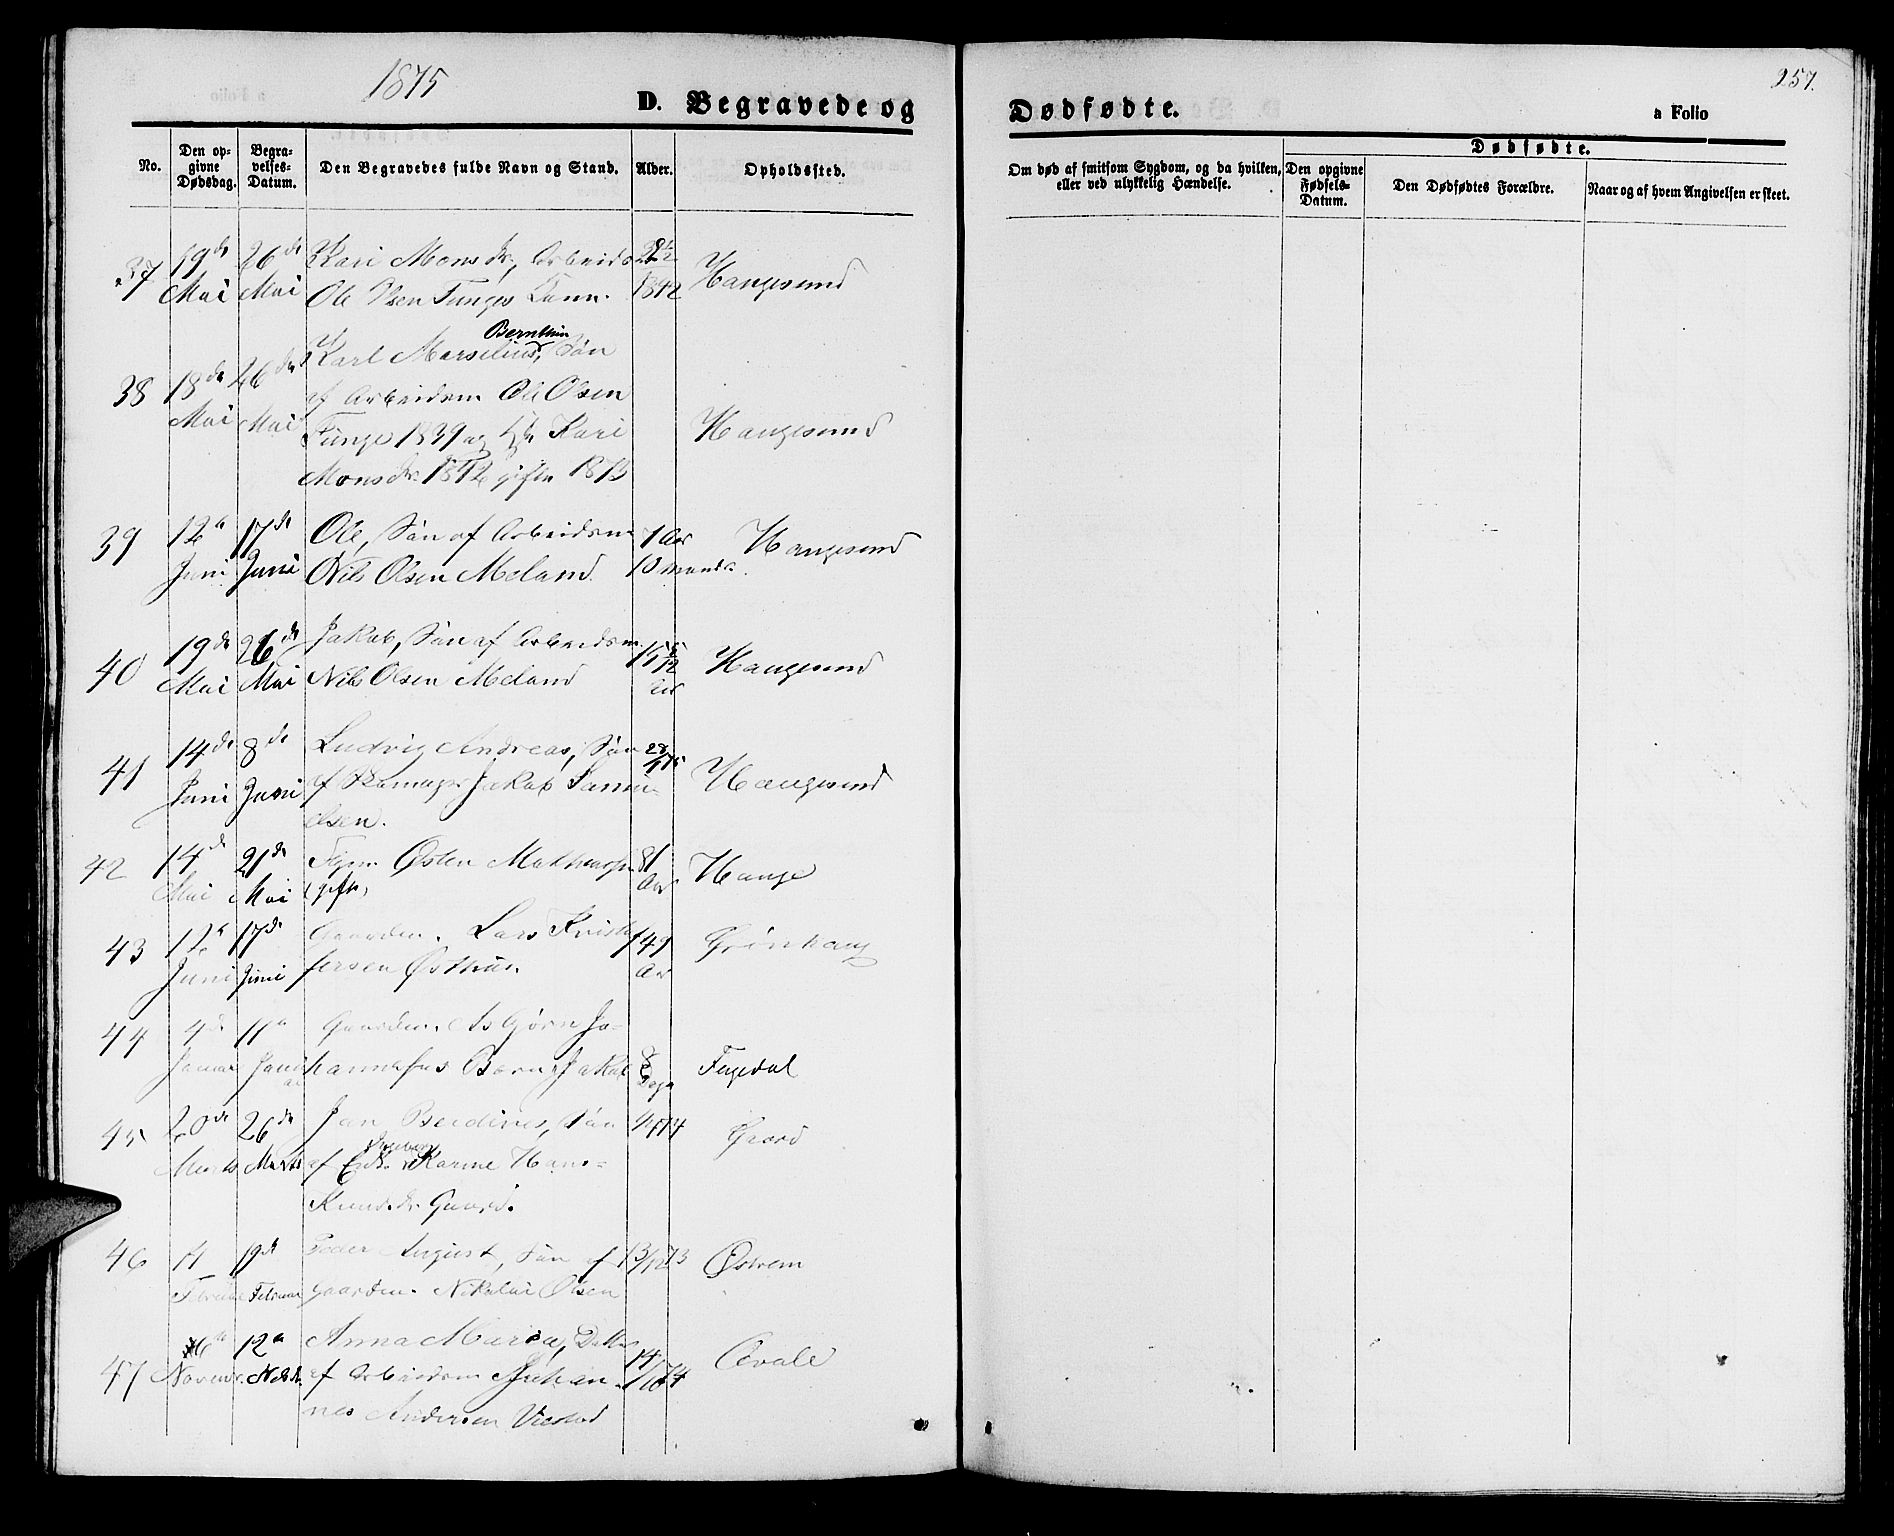 1875
D. Begravede og
No.
Den opgivne Dødsdag.
Begravelses-Datum.
Den Begravedes fulde Navn og Stand.
Alder.
Opholdssted.
37
19de Mai
26de Mai
Kari Monsdr, Arbeids
Ole Olsen Tunges
1842
Haugesund
38
18de Mai
26de Mai
Karl Marselius Bernthin, Søn
af Arbeidsm Ole Olsen
Tunge 1839 og Kari
Monsdr. 1842 gifte 1873
Haugesund
39
12te Juni
17de Juni
Ole, Søn af Arbeidsm
Nils Olsen Meland
1 Aar
10 Maand.
Haugesund
40
19de Mai
26de Mai
Jakob, Søn af Arbeidsm
Nils Olsen Meland
Haugesund
41
14de Juni
8de Juni
Ludvig Andreas, Søn
af Skomager Jakob Samu-
elsen.
Haugesund
42
14de Mai
21de Mai
Østen
(gift)
81 Aar
Hauge
43
12te Juni
17de Juni
Gaardm. Lars Kristo
fersen Østhus
49 Aar
Grönhaug
44
4de Januar
11te Januar
Gaardm. Asbjørn Jo-
hannessens Barn Jakob
8 Dage
Fagedal
45
20de Marts
26de Marts
Jan Berdines, Søn
af Enke Karine Hans-
Knudsdr. Gaard.
Gaard
46
11
19de
Februar
Peder August, Søn af
Gaardm. Nikolai Olsen
13/12 73
Østrem
47
6te
12te
Novem
Anna Maria, Datter
af Arbeidsm Johan-
nes Andersen Vestad
14/10 74
Avale
Dødfødte.
257.
a Folio
Om død af smitsom Sygdom, og da hvilken,
eller ved ulykkelig Hændelse.
Dødfødte.
Den opgivne Fødsels-Datum.
Den Dødfødtes Forældre.
Naar og af hvem Angivelsen er skeet.